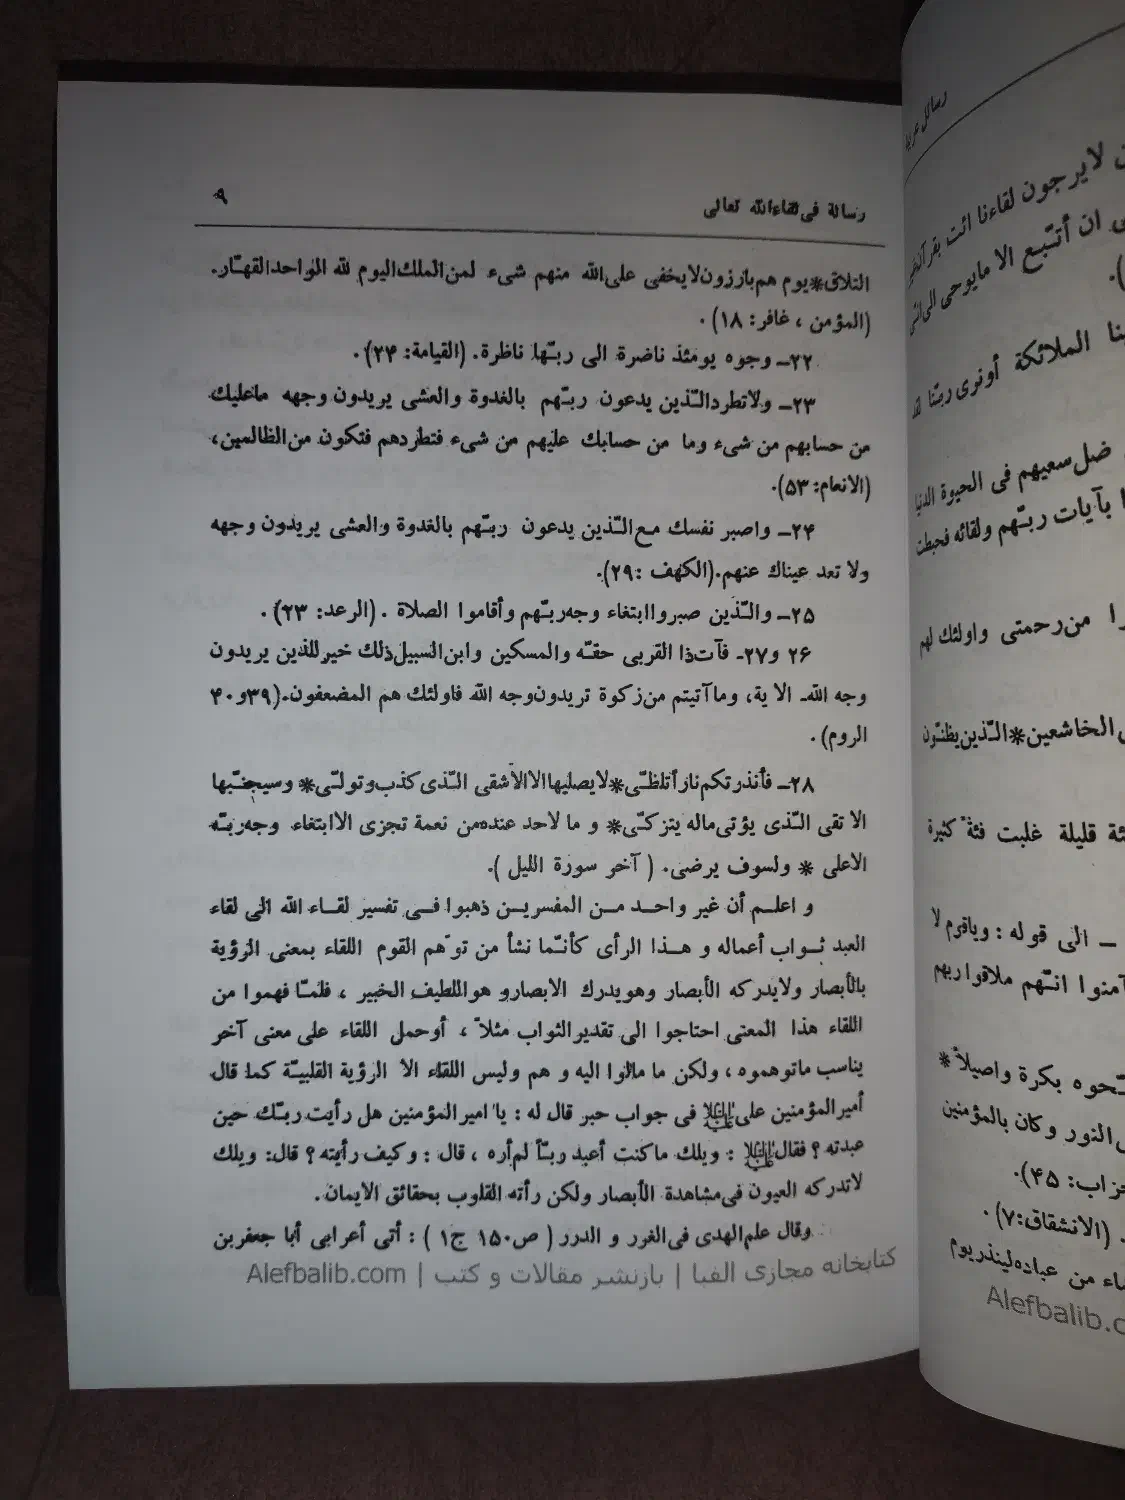 رسالة فى لقاءالله تعالى
۹
التلاق*يوم هم بارزون لايخفى على الله منهم شىء لمن الملك اليوم لله الواحد القهّار.
(المؤمن ، غافر: ۱۸) .
۲۲ـ وجوه يومئذ ناضرة الى ربّها ناظرة. (القيامة: ۲۴).
۲۳ـ ولاتطرد الّذين يدعون ربّهم بالغدوة والعشى يريدون وجهه ماعليك
من حسابهم من شىء وما من حسابك عليهم من شىء فتطردهم فتكون من الظالمين،
(الانعام: ۵۳).
۲۴ـ واصبر نفسك مع الّذين يدعون ربّهم بالغدوة والعشى يريدون وجهه
ولا تعد عيناك عنهم.(الكهف :۲۹).
۲۵ـ والّذين صبروا ابتغاء وجه ربّهم وأقاموا الصلاة . (الرعد: ۲۳) .
۲۶ و۲۷ـ فآت ذا القربى حقّه والمسكين وابن السبيل ذلك خير للذين يريدون
وجه الله ـ الاية، وماآتيتم من زكوة تريدون وجه الله فاولئك هم المضعفون.(۳۹و۴۰
الروم) .
۲۸ـ فأنذرتكم ناراً تلظّى*لايصليها الا الأشقى الّذى كذب وتولّى* وسيجنّبها
الاتقى الّذى يؤتى ماله يتزكّى* و ما لاحد عنده من نعمة تجزى الا ابتغاء وجه ربّه
الاعلى * ولسوف يرضى. ( آخر سورة الليل ).
و اعلم أن غير واحد من المفسرين ذهبوا فى تفسير لقاء الله الى لقاء
العبد ثواب أعماله و هذا الرأى كأنّما نشأ من توهّم القوم اللقاء بمعنى الرؤية
بالأبصار ولايدركه الأبصار وهويدرك الابصارو هواللطيف الخبير ، فلمّا فهموا من
اللقاء هذا المعنى احتاجوا الى تقديرالثواب مثلاً ، أوحمل اللقاء على معنى آخر
يناسب ماتوهموه ، ولكن ما مالوا اليه و هم وليس اللقاء الا الرؤية القلبيّة كما قال
أميرالمؤمنين على عليه‌السلام فى جواب حبر قال له : يا اميرالمؤمنين هل رأيت ربّك حين
عبدته ؟ فقال عليه‌السلام : ويلك ماكنت أعبد ربّاً لم أره ، قال : وكيف رأيته ؟ قال: ويلك
لاتدركه العيون فى مشاهدة الأبصار ولكن رأته القلوب بحقائق الايمان .
وقال علم الهدى فى الغرر و الدرر ( ص۱۵۰ ج۱ ) : أتى أعرابى أبا جعفربن
کتابخانه مجازی الفبا | بازنشر مقالات و کتب | Alefbalib.com
رسائل عربية
لايرجون لقاءنا ائت بقرآن غير
ان أتّبع الا مايوحى الى انّى
.(
الملائكة أونرى ربّنا لقد
ضل سعيهم فى الحيوة الدنيا
بآيات ربّهم ولقائه فحبطت
من رحمتى واولئك لهم
الخاشعين*الّذين يظنّون
قليلة غلبت فئة كثيرة
ـ الى قوله : وياقوم لا
آمنوا انّهم ملاقوا ربهم
بكرة واصيلاً *
النور وكان بالمؤمنين
: ۴۵).
(الانشقاق:۷) .
من عباده لينذر يوم
Alefbalib.c